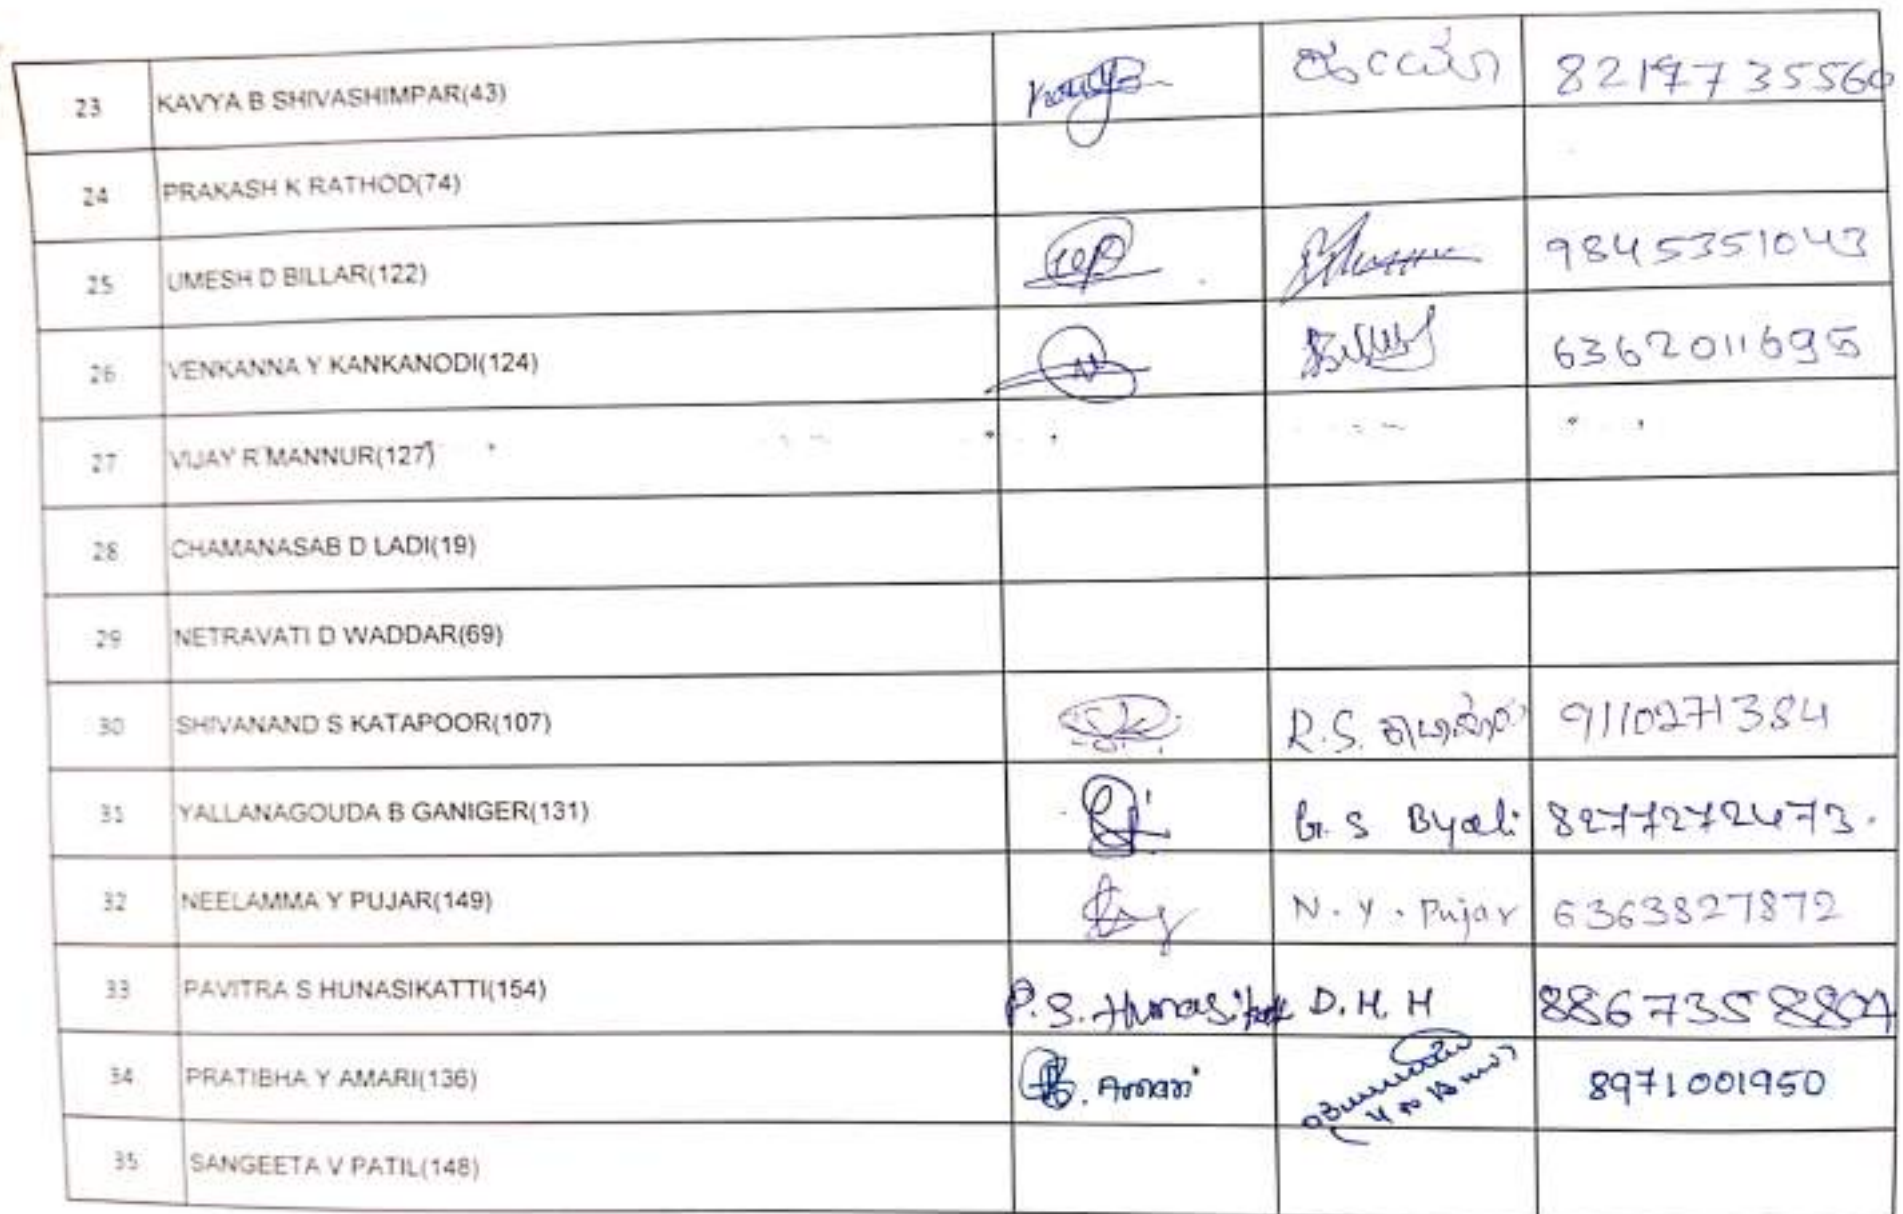 23 KAVYA B SHIVASHIMPAR(43) 8217735560
24 PRAKASH K RATHOD(74)
25 UMESH D BILLAR(122) 9845351043
26 VENKANNA Y KANKANODI(124) 6362011695
27 VIJAY R MANNUR(127)
28 CHAMANASAB D LADI(19)
29 NETRAVATI D WADDAR(69)
30 SHIVANAND S KATAPOOR(107) R.S. 9110271384
31 YALLANAGOUDA B GANIGER(131) G. S Byali 8277272473.
32 NEELAMMA Y PUJAR(149) N. Y. Pujar 6363827872
33 PAVITRA S HUNASIKATTI(154) P.S. D.H.H 8867358804
34 PRATIBHA Y AMARI(136) Amari 8971001950
35 SANGEETA V PATIL(148)